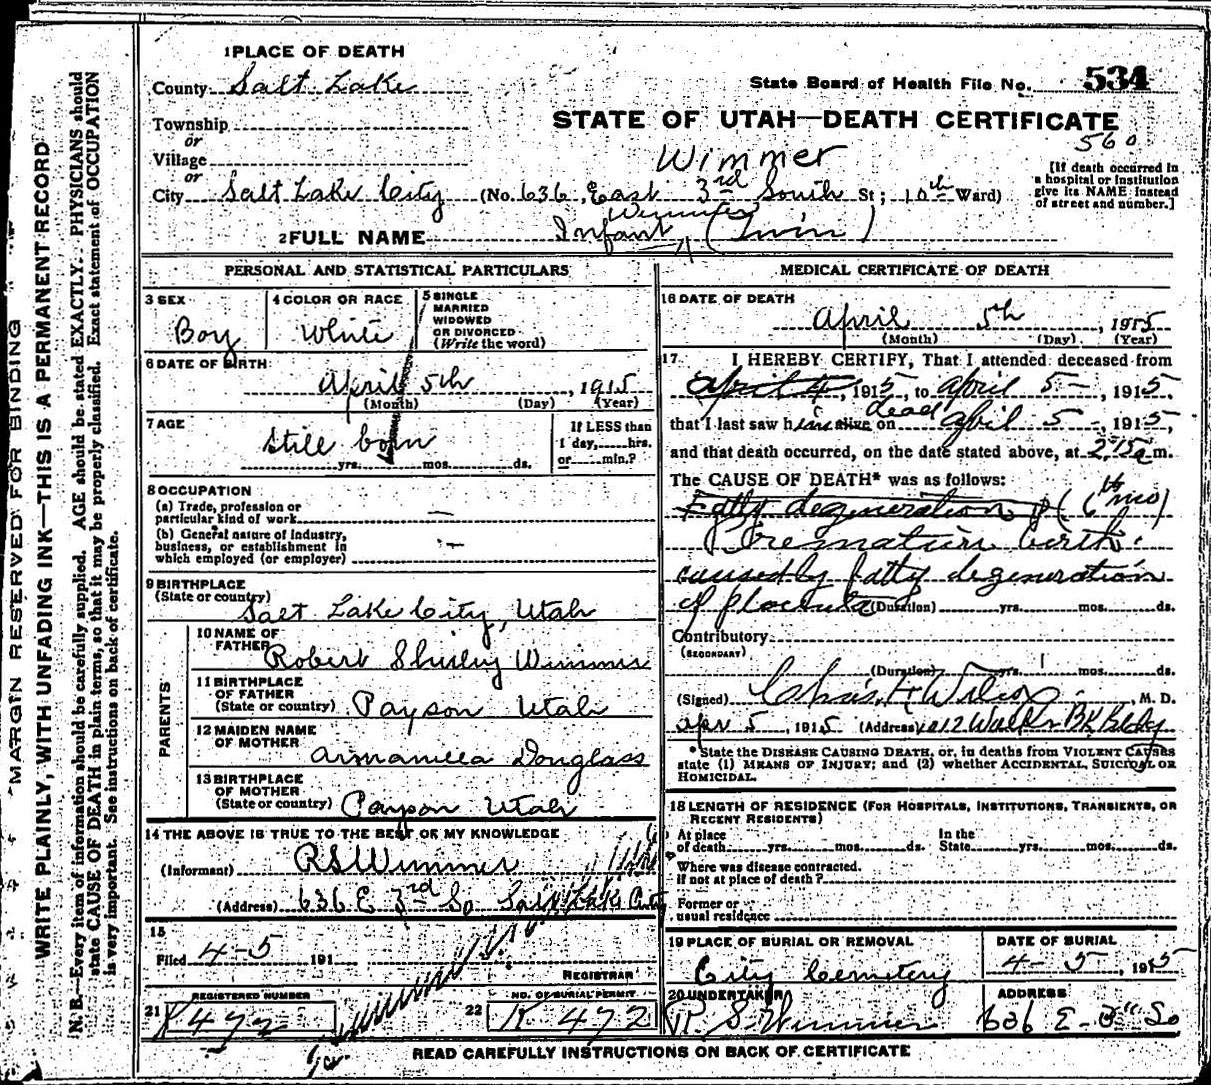 1 PLACE OF DEATH
County Salt Lake
State Board of Health File No. 534
Township
STATE OF UTAH—DEATH CERTIFICATE
or
560
Village
Wimmer
or
City Salt Lake City (No. 636, East 3rd South St; 10th Ward)
[If death occurred in
a hospital or institution
give its NAME instead
of street and number.]
2 FULL NAME Infant (Twin)
PERSONAL AND STATISTICAL PARTICULARS
3 SEX
Boy
4 COLOR OR RACE
White
5 SINGLE
MARRIED
WIDOWED
OR DIVORCED
(Write the word)
6 DATE OF BIRTH
April 5th, 1915
(Month) (Day) (Year)
7 AGE
Still born
yrs. mos. ds.
If LESS than
1 day, hrs.
or min.?
8 OCCUPATION
(a) Trade, profession or
particular kind of work —
(b) General nature of industry,
business, or establishment in
which employed (or employer) —
9 BIRTHPLACE
(State or country)
Salt Lake City, Utah
PARENTS
10 NAME OF
FATHER
Robert Shirley Wimmer
11 BIRTHPLACE
OF FATHER
(State or country) Payson Utah
12 MAIDEN NAME
OF MOTHER
Douglass
13 BIRTHPLACE
OF MOTHER
(State or country) Payson Utah
14 THE ABOVE IS TRUE TO THE BEST OF MY KNOWLEDGE
(Informant) R S Wimmer
(Address) 636 E 3rd So Salt Lake City
15
Filed 4-5 191
REGISTRAR
REGISTERED NUMBER
21 K 472
NO. OF BURIAL PERMIT
22 K 472
MEDICAL CERTIFICATE OF DEATH
16 DATE OF DEATH
April 5th, 1915
(Month) (Day) (Year)
17 I HEREBY CERTIFY, That I attended deceased from
April 4, 1915, to April 5-, 1915,
dead
that I last saw him alive on April 5-, 1915,
and that death occurred, on the date stated above, at 2.15 a m.
The CAUSE OF DEATH* was as follows:
Fatty degeneration of (6th mo)
Premature birth.
caused by fatty degeneration
of placenta (Duration) yrs. mos. ds.
Contributory
(SECONDARY)
(Duration) yrs. mos. ds.
(Signed) Chas. H Wilcox, M. D.
Apr 5, 1915 (Address) 1012 Walker Bk Bldg
*State the DISEASE CAUSING DEATH, or, in deaths from VIOLENT CAUSES
state (1) MEANS OF INJURY; and (2) whether ACCIDENTAL, SUICIDAL OR
HOMICIDAL.
18 LENGTH OF RESIDENCE (FOR HOSPITALS, INSTITUTIONS, TRANSIENTS, OR
RECENT RESIDENTS)
At place
of death yrs. mos. ds.
In the
State yrs. mos. ds.
Where was disease contracted.
if not at place of death?
Former or
usual residence
19 PLACE OF BURIAL OR REMOVAL
City Cemetery
DATE OF BURIAL
4-5, 1915
20 UNDERTAKER
R. S. Wimmer
ADDRESS
636 E-3" So
READ CAREFULLY INSTRUCTIONS ON BACK OF CERTIFICATE
MARGIN RESERVED FOR BINDING
WRITE PLAINLY, WITH UNFADING INK—THIS IS A PERMANENT RECORD
N. B.—Every item of information should be carefully supplied. AGE should be stated EXACTLY. PHYSICIANS should
state CAUSE OF DEATH in plain terms, so that it may be properly classified. Exact statement of OCCUPATION
is very important. See instructions on back of certificate.